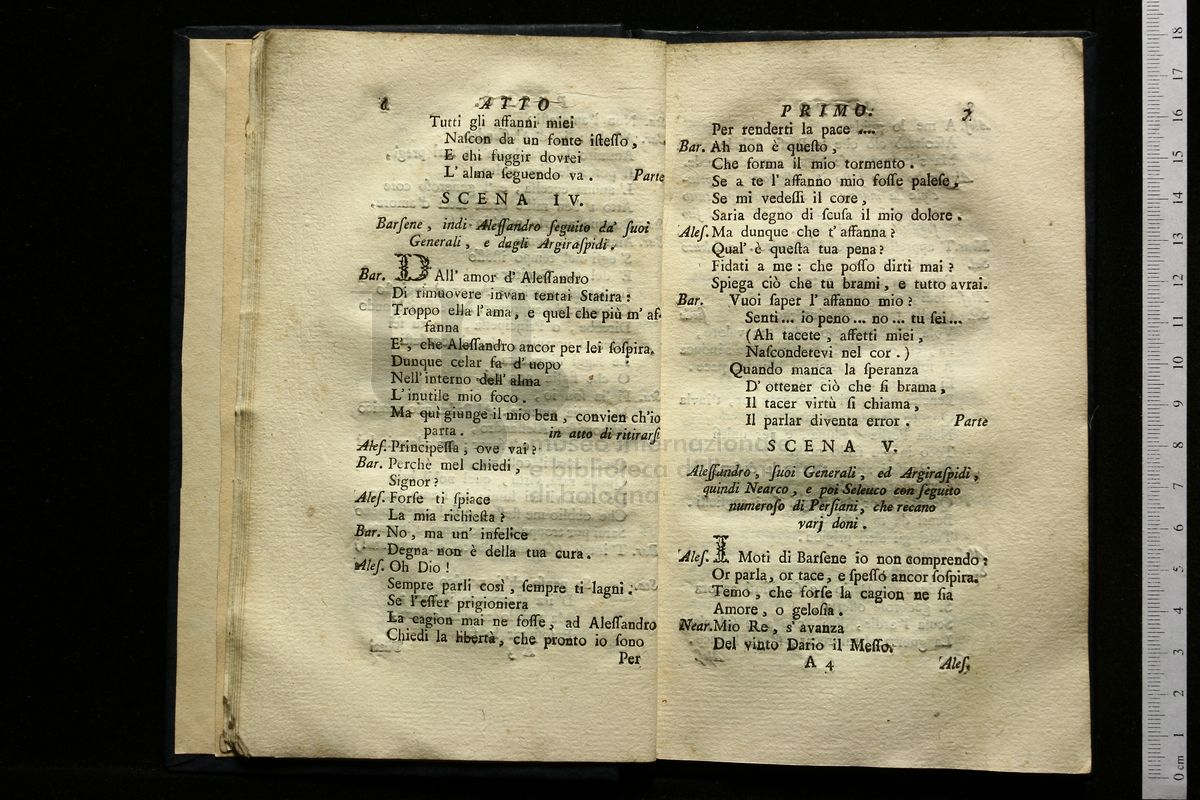 6 ATTO
Tutti gli affanni miei
Naſcon da un fonte iſteſſo,
E chi fuggir dovrei
L' alma ſeguendo va. Parte
SCENA IV.
Barſene, indi Aleſſandro ſeguito da' ſuoi
Generali, e dagli Argiraſpidi.
Bar. DAll' amor d' Aleſſandro
Di rimuovere invan tentai Statira:
Troppo ella l'ama, e quel che più m' af-
fanna
E', che Aleſſandro ancor per lei ſoſpira.
Dunque celar fa d' uopo
Nell'interno dell' alma
L'inutile mio foco.
Ma quì giunge il mio ben, convien ch'io
parta. in atto di ritirarſi
Aleſ. Principeſſa, ove vai?
Bar. Perchè mel chiedi,
Signor?
Aleſ. Forſe ti ſpiace
La mia richieſta?
Bar. No, ma un' infelice
Degna non è della tua cura.
Aleſ. Oh Dio!
Sempre parli così, ſempre ti lagni.
Se l'eſſer prigioniera
La cagion mai ne foſſe, ad Aleſſandro
Chiedi la libertà, che pronto io ſono
Per
PRIMO. 7
Per renderti la pace ....
Bar. Ah non è queſto,
Che forma il mio tormento.
Se a te l' affanno mio foſſe paleſe,
Se mi vedeſſi il core,
Saria degno di ſcuſa il mio dolore.
Aleſ. Ma dunque che t' affanna?
Qual' è queſta tua pena?
Fidati a me: che poſſo dirti mai?
Spiega ciò che tu brami, e tutto avrai.
Bar. Vuoi ſaper l' affanno mio?
Senti... io peno... no... tu ſei...
(Ah tacete, affetti miei,
Naſcondetevi nel cor.)
Quando manca la ſperanza
D' ottener ciò che ſi brama,
Il tacer virtù ſi chiama,
Il parlar diventa error. Parte
SCENA V.
Aleſſandro, ſuoi Generali, ed Argiraſpidi,
quindi Nearco, e poi Seleuco con ſeguito
numeroſo di Perſiani, che recano
varj doni.
Aleſ. I Moti di Barſene io non comprendo:
Or parla, or tace, e ſpeſſo ancor ſoſpira.
Temo, che forſe la cagion ne ſia
Amore, o geloſia.
Near. Mio Re, s' avanza
Del vinto Dario il Meſſo.
A 4 Aleſ.
museo internazionale
e biblioteca della
di bologna
0 cm 1 2 3 4 5 6 7 8 9 10 11 12 13 14 15 16 17 18